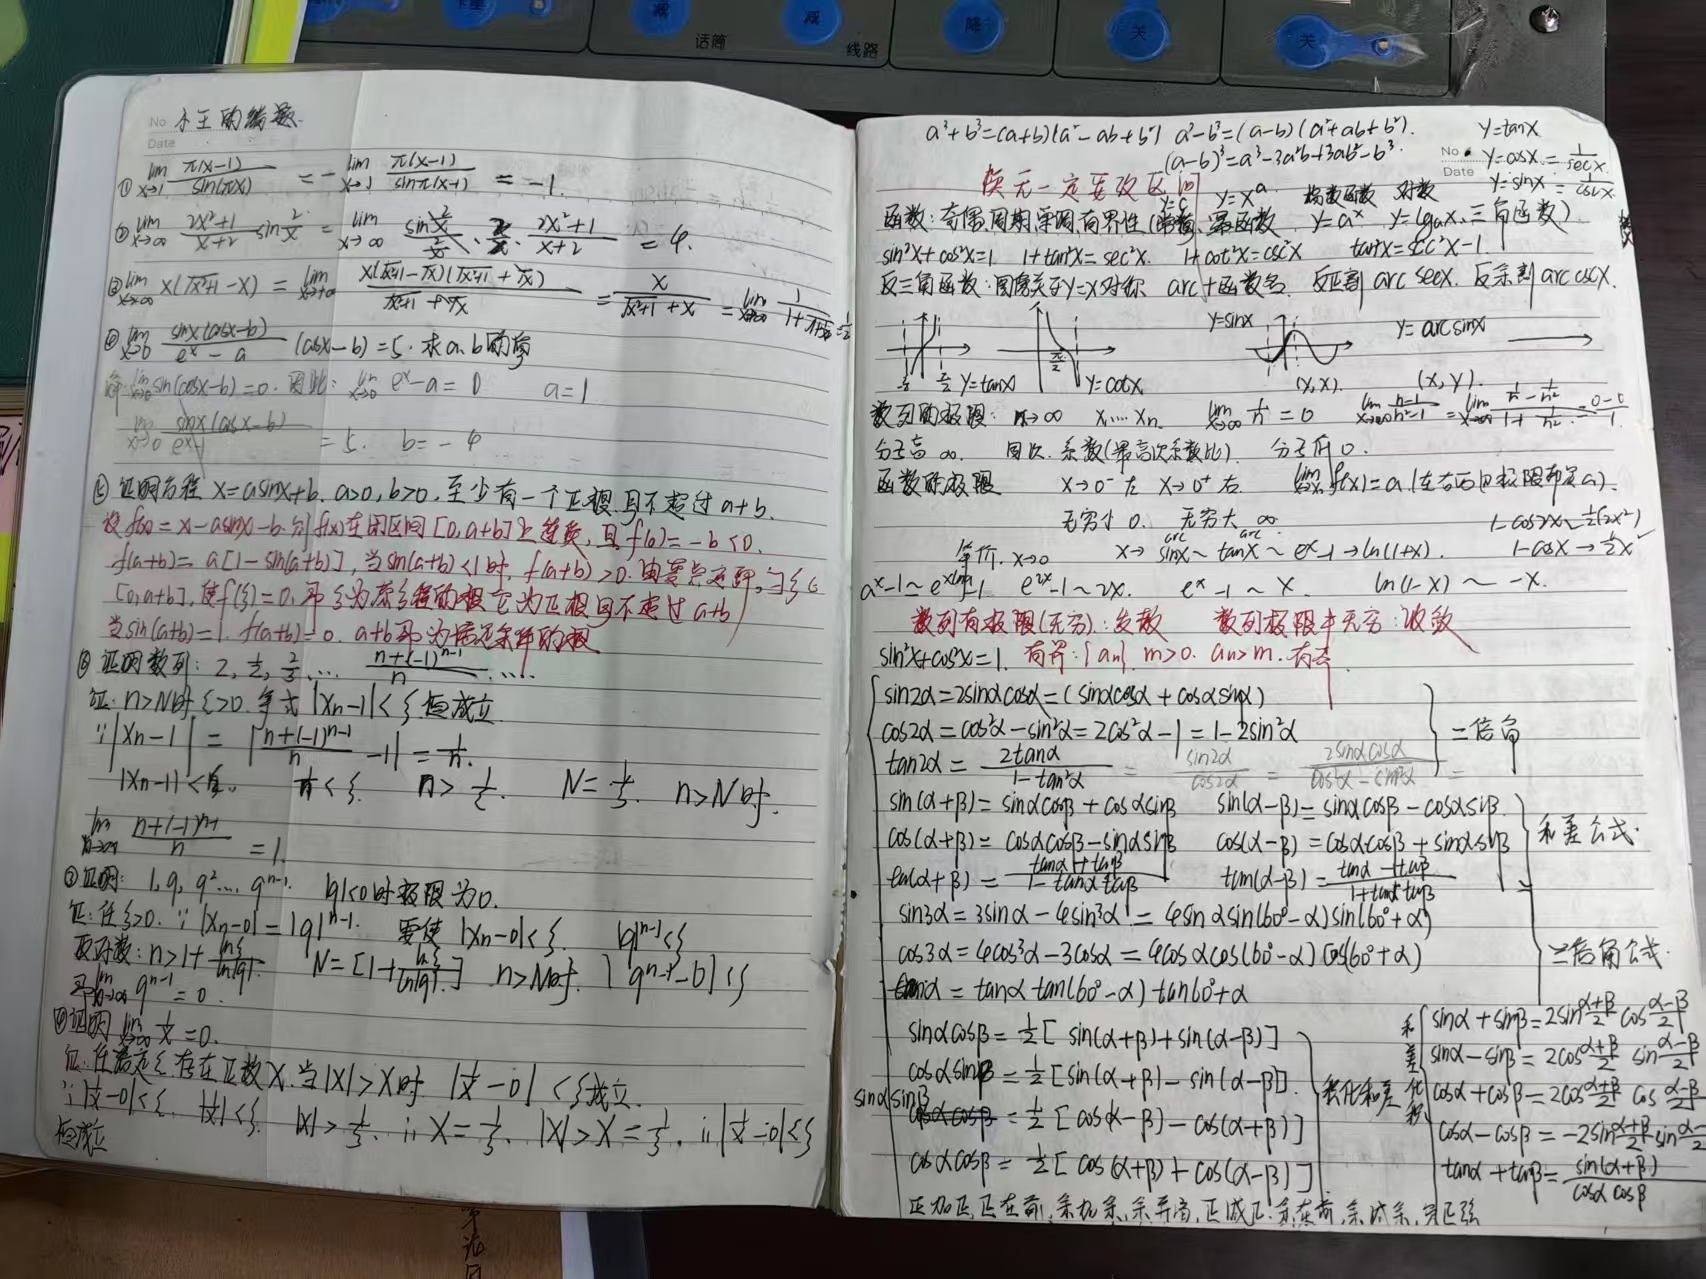 减
减
降
关
关
话筒
线路
No
Date
小王的编题
① lim x→1 π(x-1)/sin(πx) = -lim x→1 π(x-1)/sinπ(x-1) = -1.
② lim x→∞ (2x²+1)/(x+2) sin 2/x = lim x→∞ (sin 2/x)/(2/x) · 2/x · (2x²+1)/(x+2) = 4.
= x/(√x²+1 + x)
④ lim x→0 sinx(cosx-b)/(e^x - a) (cosx-b) = 5. 求a.b的
lim x→0 sin(cosx-b) = 0. 因此: lim x→0 e^x - a = 0 a = 1
= 5. b = -4
⑤ 证明方程 x = asinx+b. a>0, b>0, 至少有一个正根且不超过 a+b.
设 f(x) = x-asinx-b. 则 f(x) 在闭区间 [0,a+b] 上连续, 且 f(0) = -b<0.
f(a+b) = a[1-sin(a+b)], 当 sin(a+b)<1时. f(a+b)>0. 由零点定理, ∃ξ∈
[0,a+b], 使 f(ξ)=0. 即 ξ 为原方程的根 它为正根且不超过 a+b
当 sin(a+b)=1. f(a+b)=0. a+b 即为满足条件的根
⑥ 证明数列: 2, 1/2, 2/3, ... (n+(-1)^{n-1})/n ....
证: n>N时 ξ>0. 等式 |Xn-1|<ξ 恒成立
∵ |Xn-1| = |(n+(-1)^{n-1})/n -1| = 1/n.
|Xn-1|<ξ. 1/n<ξ. n>1/ξ. N=1/ξ. n>N时.
= 1.
⑦ 证明: 1, q, q² ... q^{n-1}. |q|<0时极限为0.
证: 任ξ>0. ∵ |Xn-0| = |q|^{n-1}. 要使 |Xn-0|<ξ. |q|^{n-1}<ξ
取对数: n>1+ lnξ/ln|q|. N=[1+ lnξ/ln|q|] n>N时. |q^{n-1}-0|<ξ
即 lim n→∞ q^{n-1} = 0.
证明 lim x→∞ 1/x = 0.
证: 任给定ξ. 存在正数X. 当|x|>X时. |1/x - 0|<ξ成立.
∵ |1/x-0|<ξ. |1/x|<ξ. |x|>1/ξ. ∴ X=1/ξ. |x|>X=1/ξ. ∴ |1/x-0|<ξ
恒成立
a³+b³=(a+b)(a²-ab+b²) a³-b³=(a-b)(a²+ab+b²).
(a-b)³=a³-3a²b+3ab²-b³.
y=tanx
No
Date
y=cosx = 1/secx.
y=sinx = 1/cscx.
换元一定要改区间
y=c y=x^a 指数函数 对数
函数: 奇偶,周期,单调,有界性 (常数, 幂函数 y=a^x y=logax, 三角函数)
sin²x+cos²x=1 1+tan²x=sec²x. 1+cot²x=csc²x tan²x=sec²x-1.
反三角函数: 图像关于y=x对称 arc+函数名. 反正割 arc secx. 反余割 arc cscx.
y=tanx y=cotx y=sinx y=arcsinx
(x,x). (x,y).
数列的极限: n→∞ x1...xn. lim x→∞ 1/n = 0
分子高 ∞. 同次. 系数(最高次系数比). 分子低 0.
函数的极限 x→0⁻ 左 x→0⁺ 右. lim f(x)=a (左右两边极限都是a).
无穷小 0. 无穷大 ∞
1-cos2x~1/2(2x²)
等价. x→0 x→ arc sinx ~ arc tanx ~ e^x-1 → ln(1+x). 1-cosx→1/2x²
e^{2x}-1~2x. e^x-1~x. ln(1-x)~-x.
数列有极限(无穷): 发散 数列极限非无穷: 收敛
sin²x+cos²x=1. 有界: {an}. m>0. an>m.
sin2α=2sinαcosα=(sinαcosα+cosαsinα)
cos2α=cos²α-sin²α=2cos²α-1=1-2sin²α
tan2α= 2tanα/(1-tan²α) = sin2α/cos2α = 2sinαcosα/(cos²α-sin²α) =
二倍角
sin(α+β)=sinαcosβ+cosαsinβ sin(α-β)=sinαcosβ-cosαsinβ.
cos(α+β)=cosαcosβ-sinαsinβ cos(α-β)=cosαcosβ+sinαsinβ
tan(α+β)=(tanα+tanβ)/(1-tanαtanβ) tan(α-β)=(tanα-tanβ)/(1+tanαtanβ)
和差公式.
sin3α=3sinα-4sin³α=4sinαsin(60°-α)sin(60°+α)
cos3α=4cos³α-3cosα=4cosαcos(60°-α)cos(60°+α)
三倍角公式.
=tanαtan(60°-α)tan60°+α
sinαcosβ=1/2[sin(α+β)+sin(α-β)]
cosαsinβ=1/2[sin(α+β)-sin(α-β)].
sinαsinβ=1/2[cos(α-β)-cos(α+β)]
cosαcosβ=1/2[cos(α+β)+cos(α-β)]
积化和差
和差化积
sinα+sinβ=2sin(α+β)/2 cos(α-β)/2
sinα-sinβ=2cos(α+β)/2 sin(α-β)/2
cosα+cosβ=2cos(α+β)/2 cos(α-β)/2
cosα-cosβ=-2sin(α+β)/2 sin
tanα+tanβ=sin(α+β)/(cosαcosβ)
正加正,正在前,余加余,余并肩,正减正,余在前,余减余,负正弦